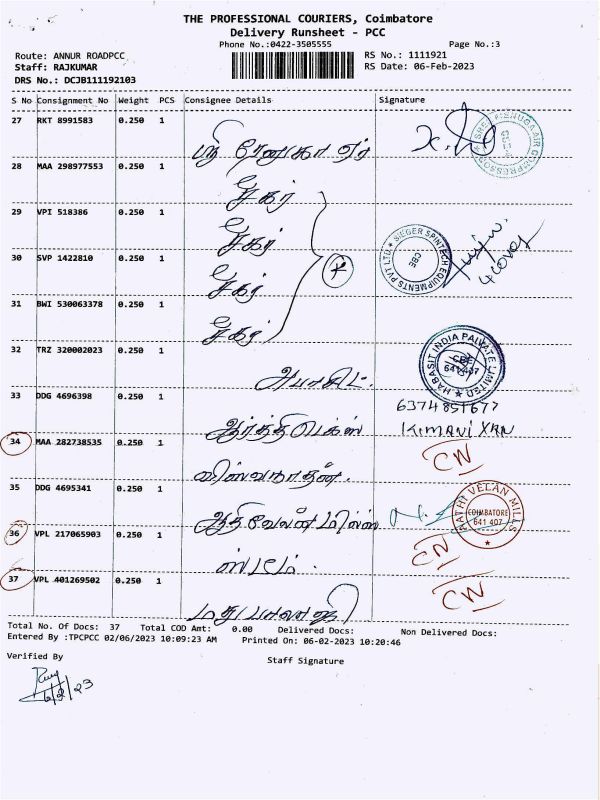 THE PROFESSIONAL COURIERS, Coimbatore
Delivery Runsheet - PCC
Phone No.:0422-3505555
Page No.:3
Route: ANNUR ROADPCC
RS No.: 1111921
Staff: RAJKUMAR
RS Date: 06-Feb-2023
DRS No.: DCJB111192103
S No Consignment No Weight PCS Consignee Details Signature
27 RKT 8991583 0.250 1
ஸ்ரீ ரேணுகா ஏர்
SREE RENUGA AIR COMPRESSOR
28 MAA 298977553 0.250 1
சீகர்
29 VPI 518386 0.250 1
சீகர்
SIEGER SPINTECH EQUIPMENTS PVT LTD. CBE
4 cover
30 SVP 1422810 0.250 1
சீகர்
31 BWI 530063378 0.250 1
சீகர்
32 TRZ 320002023 0.250 1
HABASIT INDIA PRIVATE LIMITED CBE 641 407
33 DDG 4696398 0.250 1
6374851677
ஆர்த்தி டெக்ஸ்
34 MAA 282738535 0.250 1
CN
விஸ்வநாதன்.
35 DDG 4695341 0.250 1
ஆதிவேலன் மில்ஸ்
AATHI VELAN MILLS COIMBATORE 641 407
36 VPL 217065903 0.250 1
CN
37 VPL 401269502 0.250 1
CN
மது பாலாஜி
Total No. Of Docs: 37 Total COD Amt: 0.00 Delivered Docs: Non Delivered Docs:
Entered By :TPCPCC 02/06/2023 10:09:23 AM Printed On: 06-02-2023 10:20:46
Verified By
Staff Signature
6/2/23